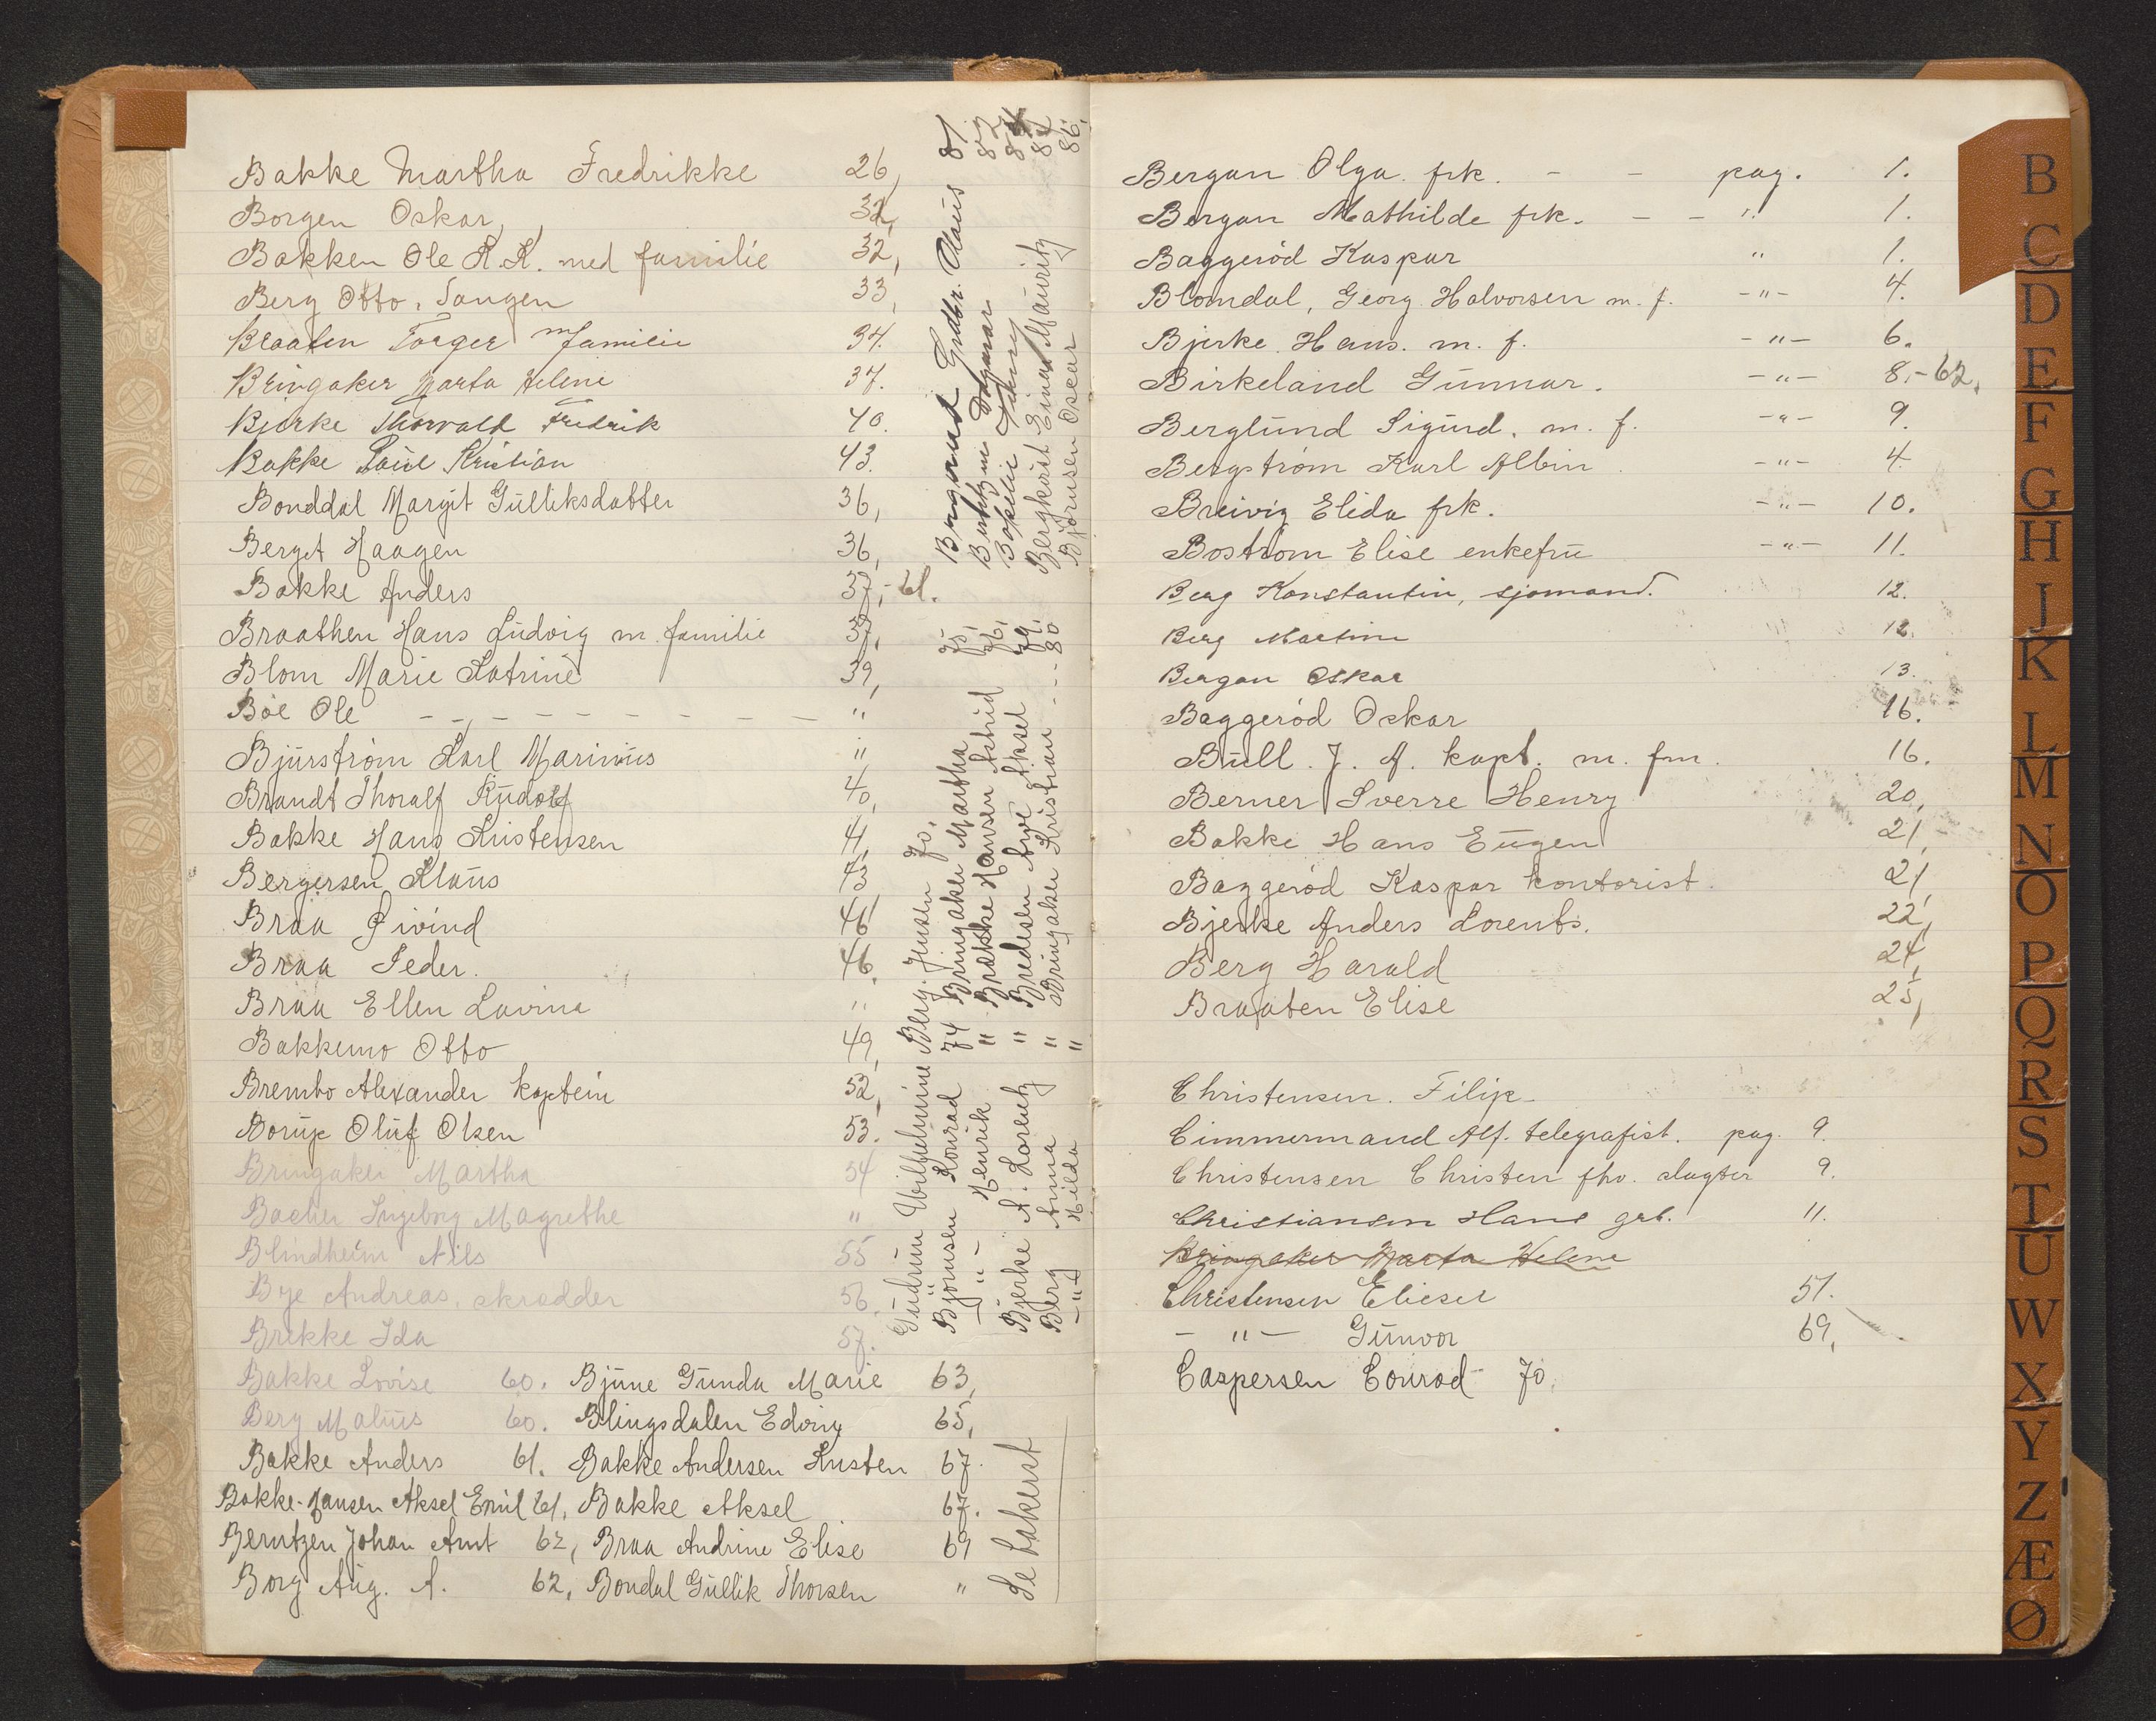 Bakke Martha Fredrikke 26,
Borgen Oskar, 32,
Bakken Ole K. K. med familie 32,
Berg Otto, Tangen 33,
Braaten Torger m familie 34.
Bringaker Marta Helene 37.
Bjerke Thorvald Fredrik 40.
Bakke Paul Kristian 43.
Bonddal Margit Gulliksdatter 36,
Berget Haagen 36,
Bakke Anders 37,- 61.
Braathen Hans Ludvig m. familie 37,
Blom Marie Katrine 39,
Böe Ole - - - - - - - - - "
Bjurström Karl Marinius "
Brandt Thoralf Rudolf 40,
Bakke Hans Kristensen 41,
Bergersen Klaus 43,
Braa Eivind 46,
Braa Peder. 46.
Braa Ellen Lovina "
Bakkemo Otto 49,
Brembo Alexander kaptein 52,
Borup Oluf Olsen 53.
Bringaker Martha 54
Bacher Ingeborg Magrethe "
Blindheim Nils 55
Bye Andreas, skrædder 56.
Brekke Ida 57.
Bakke Lovise 60. Bjune Gunda Marie 63,
Berg Malius 60. Blingsdalen Edvin 65,
Bakke Anders 61. Bakke Andersen Kristen 67.
Bakke-Hansen Aksel Emil 61. Bakke Aksel 67.
Berntzen Johan Arnt 62, Braa Andrine Elise 69
Borg Aug. A. 62, Bondal Gullik Thorsen "
Klaus 81
Bentzen Dagmar 82
Bergkvist Einar Mauritz 84
Bjørnsen Oskar 86.
Berg. Jensen 70,
74 Bringaker Martha 75,
" Brække Hansen Astrid 76,
" Bredesen Arve Aksel 79,
" Bringaker Kristian - - - 80
"
Gudrun Wilhelmine
Bjørnsen Konrad
- " - Henrik
Bjerke A. Lorentz
Berg Anna
- " - Hilda
Se bakerst
Bergan Olga frk. - - pag. 1.
Bergan Mathilde frk. - - " 1.
Baggeröd Kaspar " 1.
Blomdal, Georg Halvorsen m. f. -"- 4.
Bjerke Hans. m. f. -"- 6.
Birkeland Gunnar. -"- 8.-62.
Berglund Sigurd. m. f. -"- 9.
Bergström Karl Albin -"- 4.
Breivig Elida frk. -"- 10.
Boström Elise enkefru -"- 11.
Berg Konstantin, sjømand. 12.
Berg Martin 12.
Bergan Oskar 13.
Baggeröd Oskar 16.
Bull. J. A. kapt. m. fm. 16.
Berner Sverre Henry 20,
Bakke Hans Eugen 21,
Baggeröd Kaspar kontorist. 21,
Bjerke Anders Lorents. 22,
Berg Harald 24,
Braaten Elise 25,
Christensen. Filip-
Cimmermand Alf. telegrafist. pag. 9.
Christensen Christen fhv. slagter 9.
Christiansen Hans grb. 11.
Bringaker Marta Helene
Christensen Elieser 51.
- " - Gunvor 69,
Caspersen Conrad 70,
B
C
D
E
F
G
H
J
K
L
M
N
O
P
Q
R
S
T
U
W
X
Y
Z
Æ
Ø